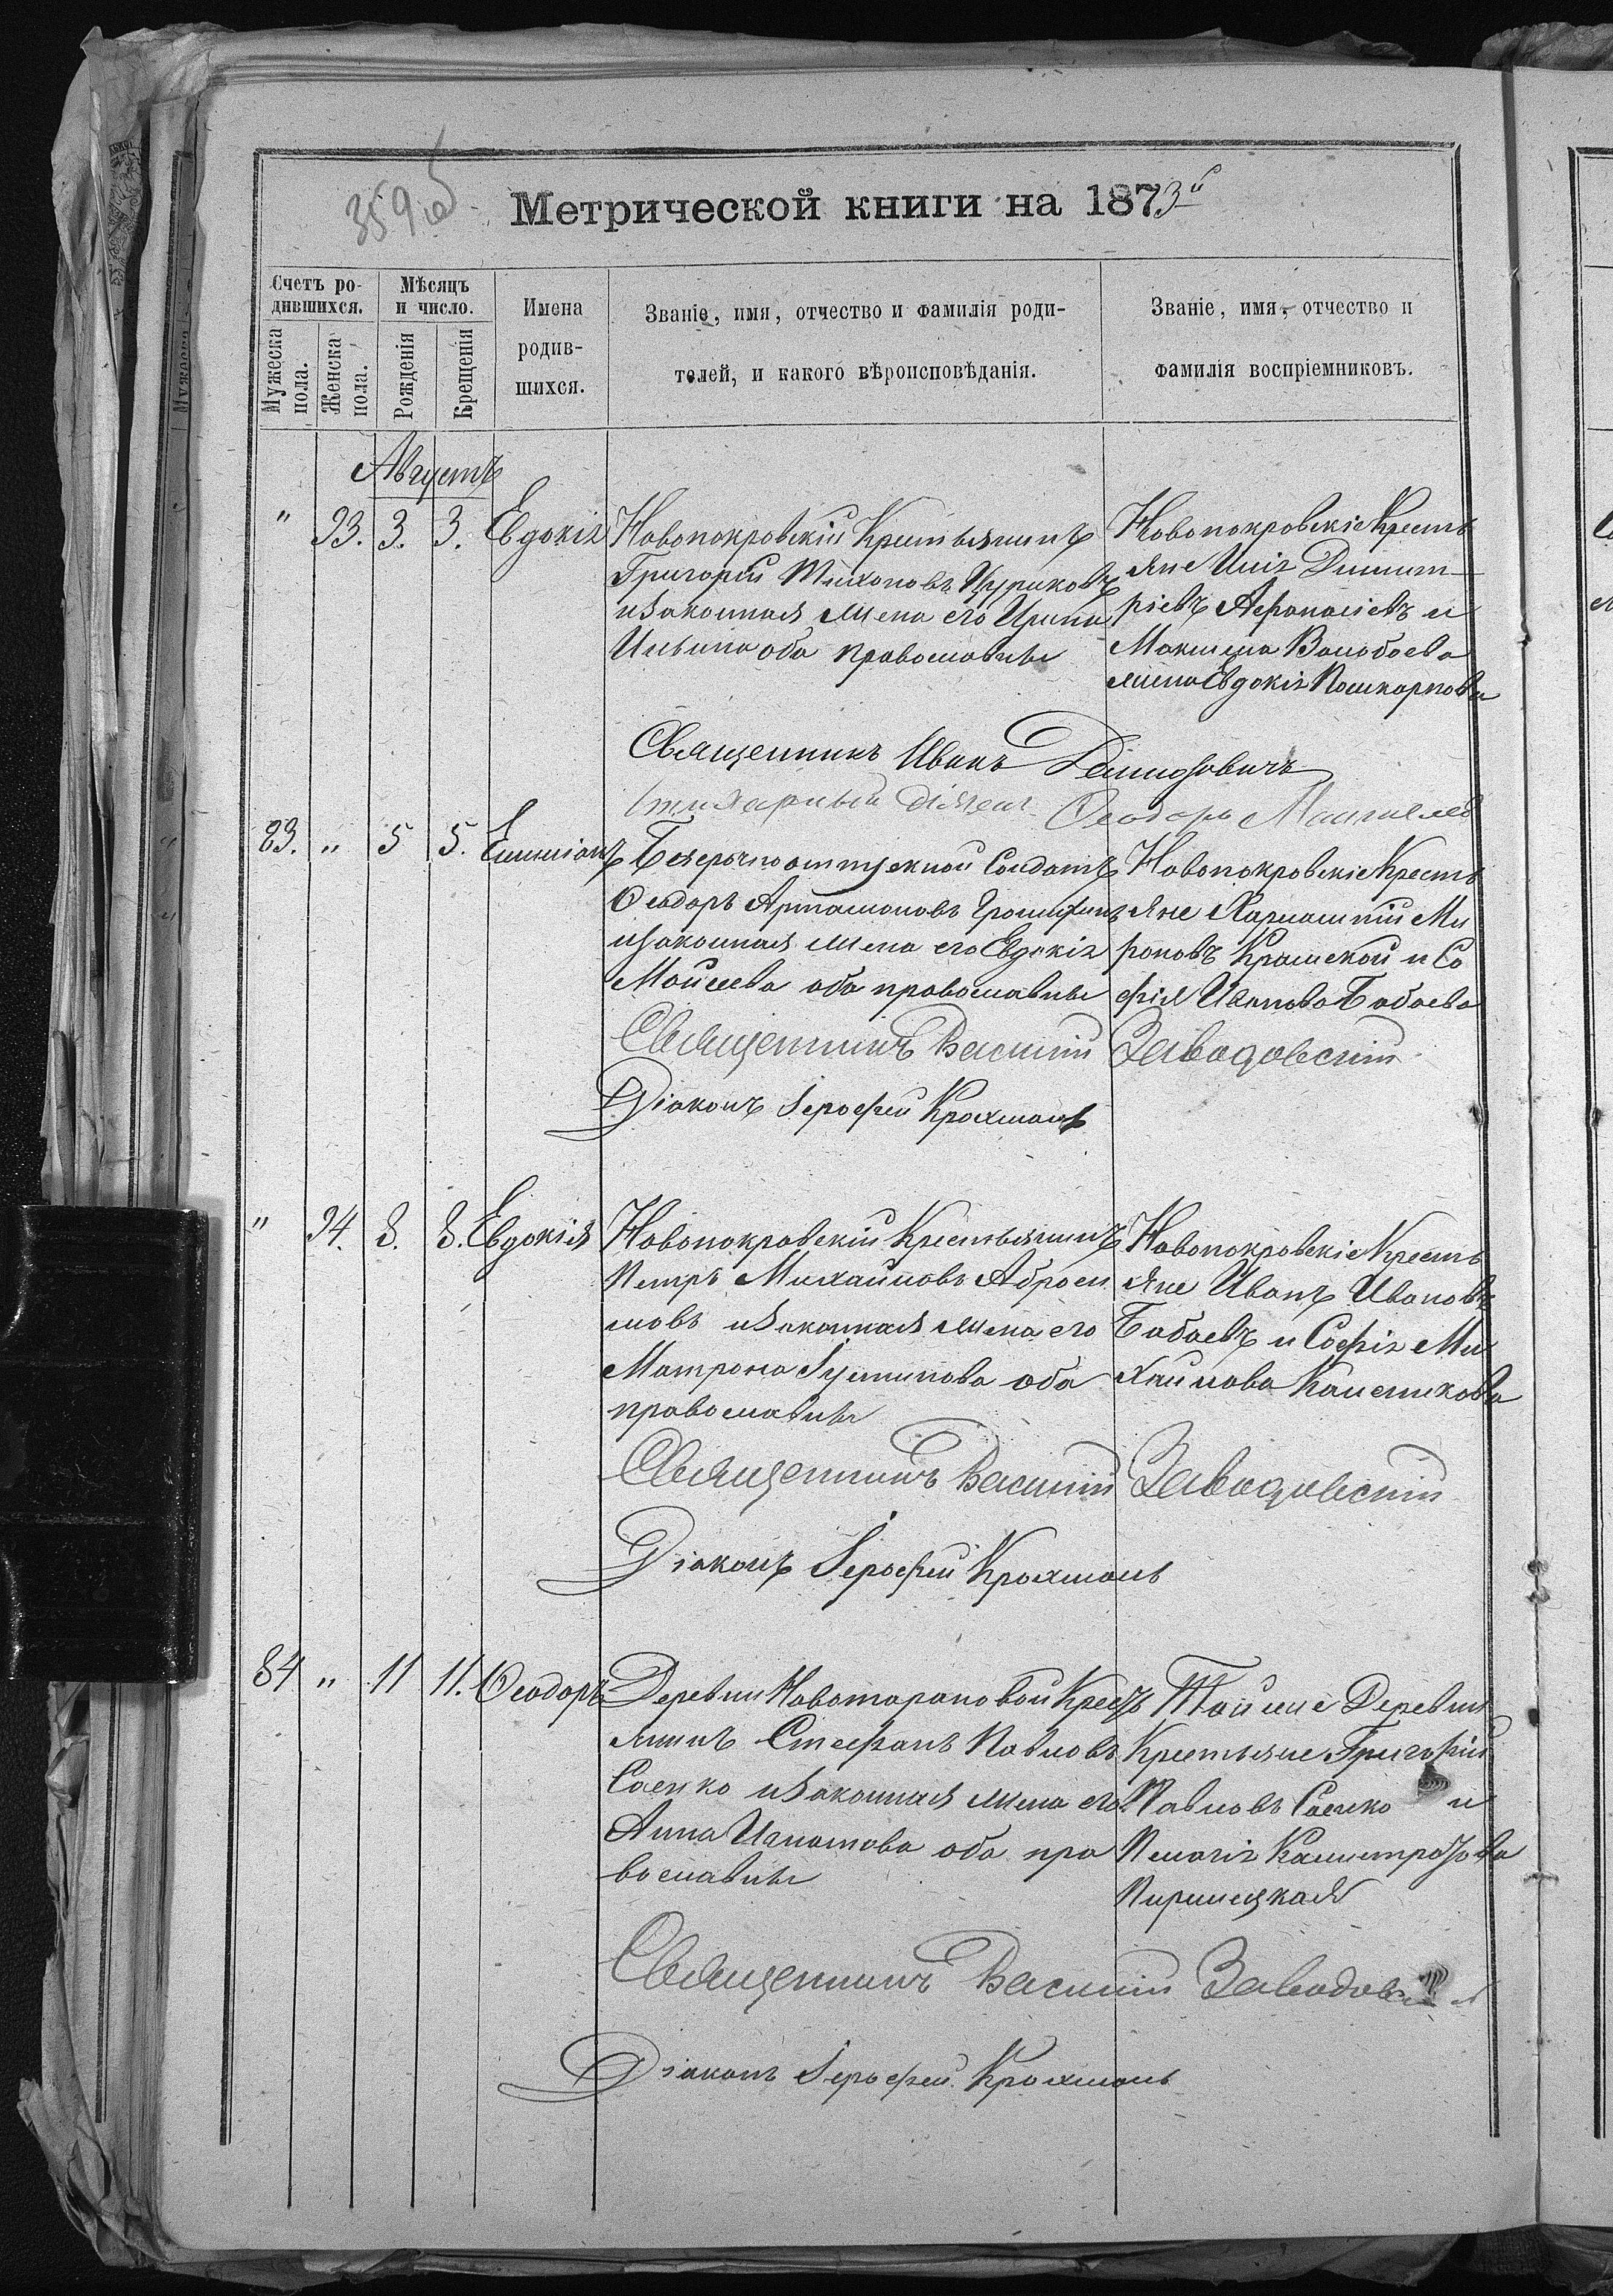 359 об
Метрической книги на 1873й
Счетъ ро-
дившихся.
Мѣсяцъ
и число.
Имена
родив-
шихся.
Званіе, имя, отчество и фамилія роди-
телей, и какого вѣроисповѣданія.
Званіе, имя, отчество и
фамилія воспріемниковъ.
Мужеска
пола.
Женска
пола.
Рожденія
Крещенія
Августъ
" 93. 3. 3. Евдокія
Новопокровскій Крестьянинъ
Григорій Тихоновъ Цуриковъ
и законная жена его Ирина
Ильина оба православные
Новопокровскіе Кресть
яне Илія Димит-
ріевъ Афанасіевъ и
Максима Валобоева
жена Евдокія Поликарпова
Священникъ Иванъ Демидовичъ
Стихарный діякъ Феодоръ
83. " 5 5. Емиліанъ
Безсрочноотпускной Солдатъ
Феодоръ Артамоновъ
и законная жена его Евдокія
Моисеева оба православные
Новопокровскіе Кресть
яне Харлампій Ми
роновъ и Со
фія Иванова Бабаева
Священникъ Василій Заводовскій
Діаконъ Іерофей Крохмаль
" 94. 8. 8. Евдокія
Новопокровскій Крестьянинъ
Петръ Михаиловъ Аброси
мовъ и законная жена его
Матрона Іустинова оба
православные
Новопокровскіе Кресть
яне Иванъ Ивановъ
Бабаевъ и Софія Ми
хаилова Калсникова
Священникъ Василій Заводовскій
Діаконъ Іерофей Крохмаль
84 " 11 11. Феодоръ
Деревни Новотарановой Кресть
янинъ Стефанъ Павловъ
Саенко и законная жена его
Анна Игнатова оба пра
вославные
Той же Деревни
Крестьяне Григорій
Павловъ Саенко и
Пелагія Калистратова
Пирицкая
Священникъ Василій Заводовскій
Діаконъ Іерофей Крохмаль